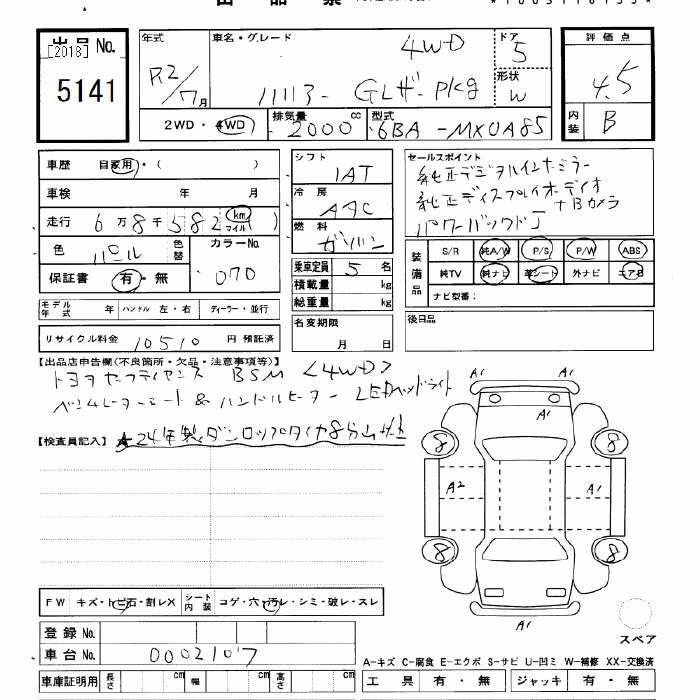 出品票
*1003116153*
出品No. 年式 車名・グレード 4WD ドア 5 評価点
[2018] 5141 R2/7月 ハリアー GLザーpkg 形状 W 4.5
2WD・4WD 排気量 2000 cc 型式 6BA-MXUA85 内装 B
車歴 自家用・( )
車検 年 月
走行 6万8千582(km マイル)
色 パール 色替 カラーNo. 070
保証書 有・無
モデル年式 年 ハンドル 左・右 ディーラー・並行
リサイクル料金 10510 円 預託済
シフト IAT
冷房 AAC
燃料 ガソリン
乗車定員 5 名
積載量 kg
総重量 kg
名変期限 月 日
セールスポイント
純正デジタルインナーミラー
純正ディスプレイオーディオ
ナBカメラ
パワーバックドア
装備品 S/R 純A/W P/S P/W ABS
純TV 純ナビ 革シート 外ナビ エアB
ナビ型番:
後日品
【出品店申告欄(不良箇所・欠品・注意事項等)】
トヨタセーフティセンス BSM <4WD>
ベンチレーターシート & ハンドルヒーター LEDヘッドライト
【検査員記入】 ★24年製ダンロップタイヤ8分山付き
A1
A1
8 8
A2 A1 A1
8 8
A1
スペア
FW キズ・トビ石・割レX シート内装 コゲ・穴・汚レ・シミ・破レ・スレ
登録No.
車台No. 0002107
車庫証明用 長さ cm 幅 cm 高さ cm
A-キズ C-腐食 E-エクボ S-サビ U-凹ミ W-補修 XX-交換済
工具 有・無 ジャッキ 有・無